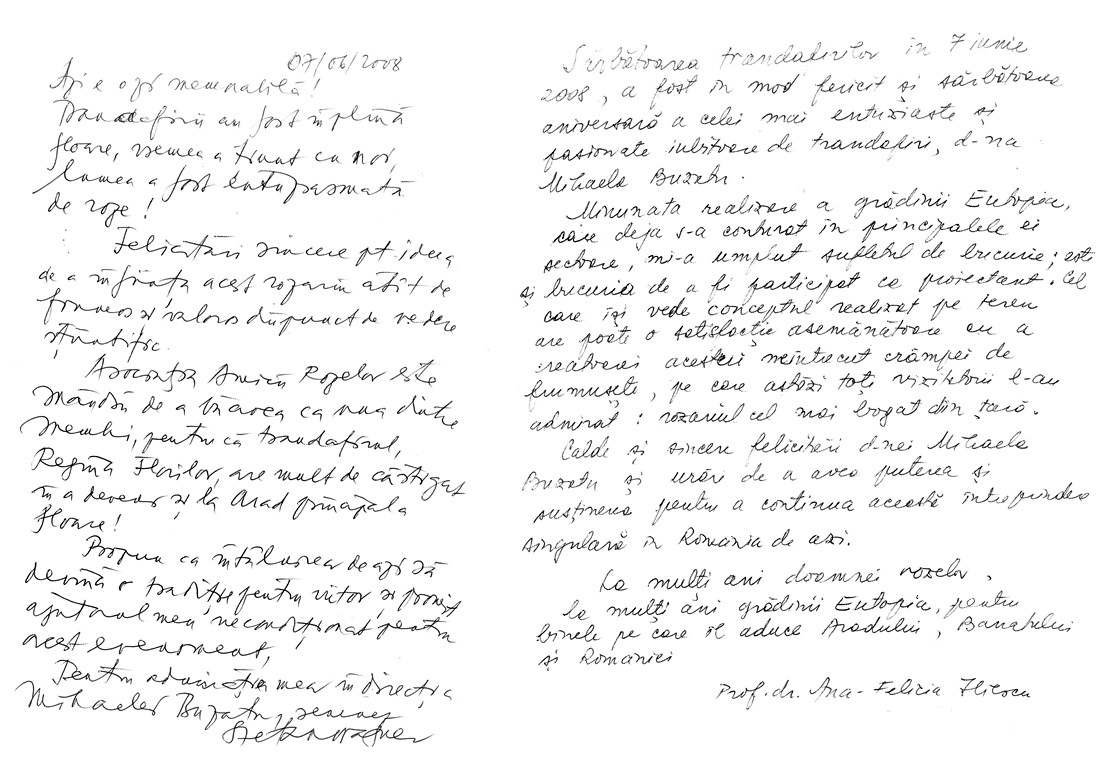 07/06/2008
Azi e o zi memorabilă!
Trandafirii au fost în plină
floare, vremea a ținut cu noi,
lumea a fost entuziasmată
de roze!
Felicitări sincere pt ideea
de a înființa acest rozariu atît de
frumos și valoros din punct de vedere
științific.
Asociația Amicii Rozelor este
mândră de a vă avea ca una dintre
membri, pentru că trandafirul,
Regina Florilor, are mult de câștigat
în a deveni și la Arad principala
floare!
Propun ca întâlnirea de azi să
devină o tradiție pentru viitor și promit
ajutorul meu necondiționat pentru
acest eveniment,
Pentru admirația mea în direcția
Mihaelei Buzatu, semnez
Stefan Wagner
Sărbătoarea trandafirilor în 7 iunie
2008, a fost în mod fericit și sărbătoarea
aniversară a celei mai entuziaste și
pasionate iubitoare de trandafiri, d-na
Mihaela Buzatu.
Minunata realizare a grădinii Eutopia,
care deja s-a conturat în principalele ei
sectoare, mi-a umplut sufletul de bucurie; este
și bucuria de a fi participat ca proiectant. Cel
care își vede conceptul realizat pe teren
are poate o satisfacție asemănătoare cu a
creatoarei acestui neîntrecut crâmpei de
frumusețe, pe care astăzi toți vizitatorii l-au
admirat: rozariul cel mai bogat din țară.
Calde și sincere felicitări d-nei Mihaela
Buzatu și urări de a avea puterea și
susținerea pentru a continua această întreprindere
singulară în România de azi.
La mulți ani doamnei rozelor,
la mulți ani grădinii Eutopia, pentru
binele pe care îl aduce Aradului, Banatului
și României
Prof. dr. Ana-Felicia Iliescu